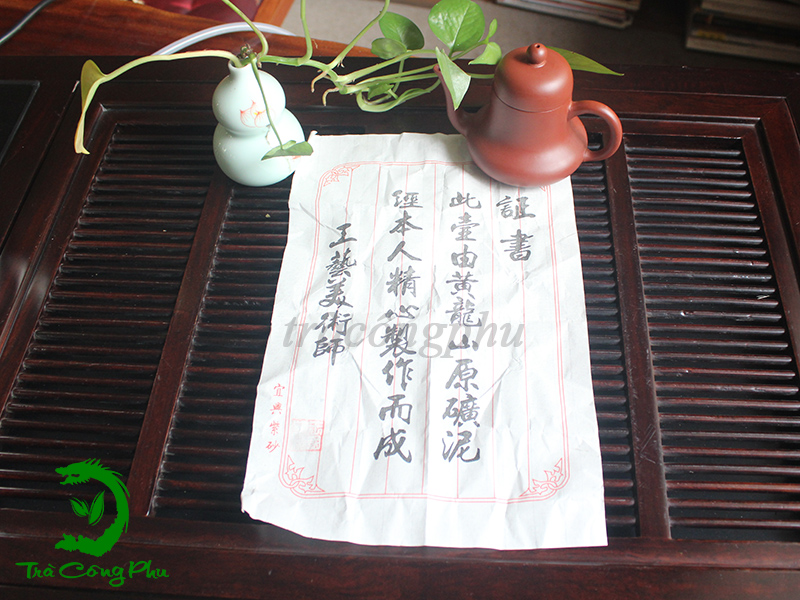 証書
此壺由黃龍山原礦泥
經本人精心製作而成
工藝美術師
宜興紫砂
trà công phu
Trà Công Phu